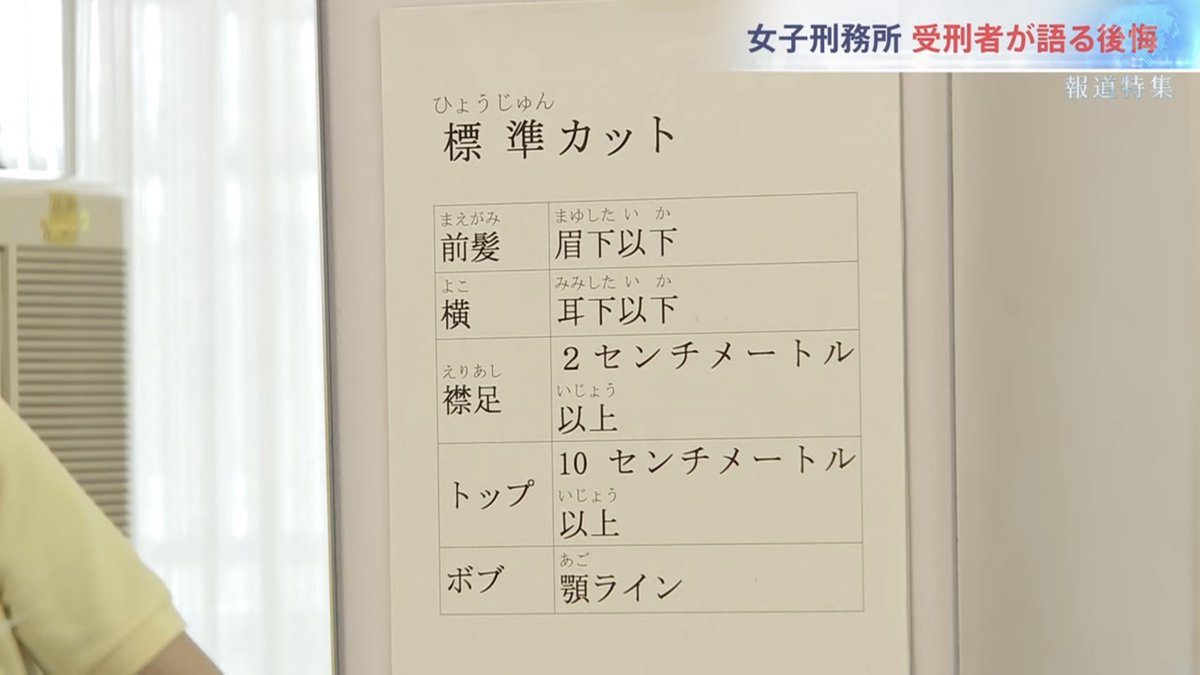 女子刑務所 受刑者が語る後悔
報道特集
ひょうじゅん
標準カット
まえがみ
前髪
まゆした いか
眉下以下
よこ
横
みみした いか
耳下以下
えりあし
襟足
2センチメートル
いじょう
以上
トップ
10 センチメートル
いじょう
以上
ボブ
あご
顎ライン